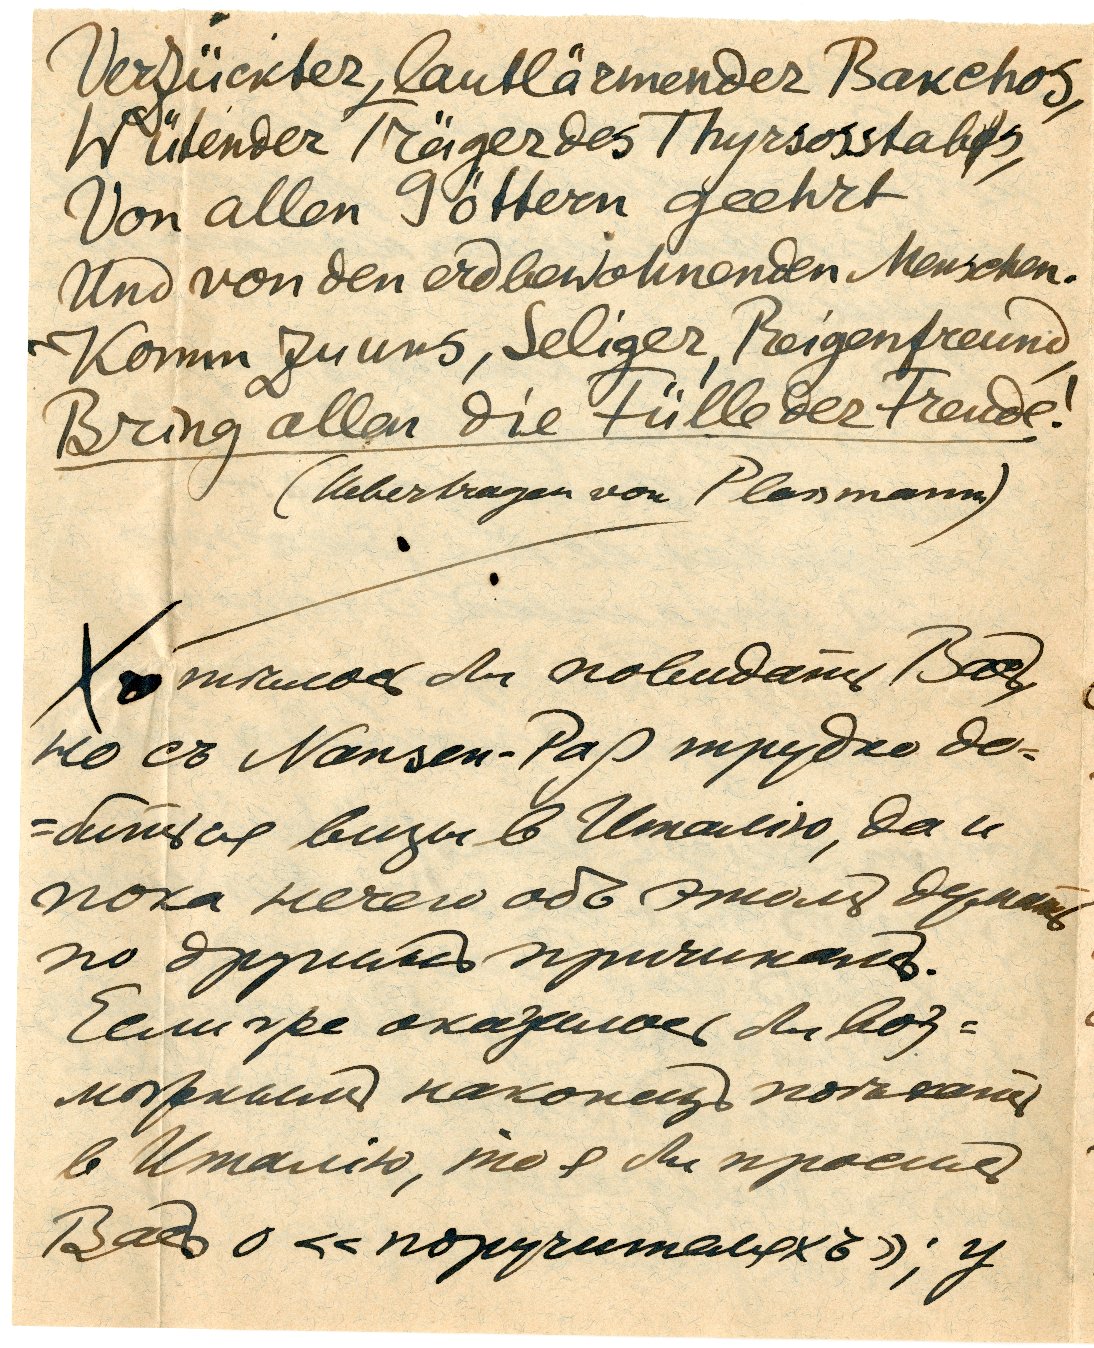 Verzückter, lautlärmender Bakchos,
Wütender Träger des Thyrsosstabes,
Von allen Göttern geehrt
Und von den erdbewohnenden Menschen.
Komm zu uns, Seliger, Reigenfreund,
Bring allen die Fülle der Freude!
(Uebertragen von Plassmann)
Хотѣлось бы повидать Васъ,
но съ Nansen-Paß трудно до=
=биться визы в Италію, да и
пока нечего объ этомъ думать
по другимъ причинамъ.
Если же оказалось бы воз=
можнымъ наконецъ поѣхать
в Италію, то я бы просилъ
Васъ о «поручителяхъ»; у